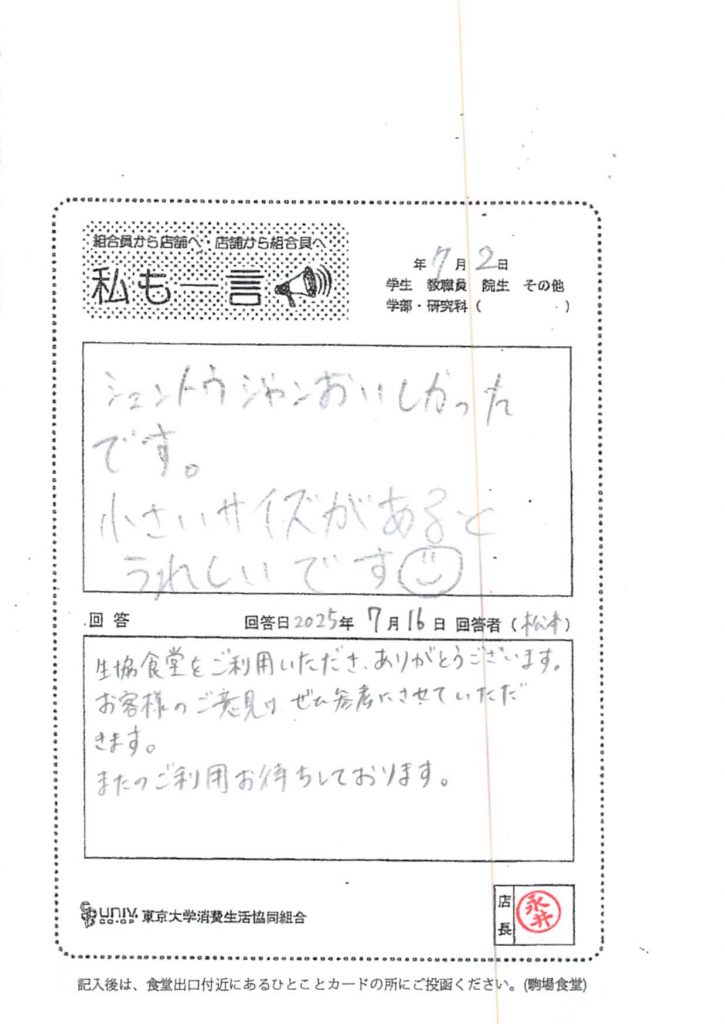 組合員から店舗へ・店舗から組合員へ
私も一言
年 7月 2日
学生 教職員 院生 その他
学部・研究科 ( )
シェントウジャンおいしかった
です。
小さいサイズがあると
うれしいです
回答 回答日2025年 7月16日 回答者 (松本)
生協食堂をご利用いただき、ありがとうございます。
お客様のご意見は ぜひ参考にさせていただ
きます。
またのご利用お待ちしております。
UNIV. CO-OP 東京大学消費生活協同組合
店長 永井
記入後は、食堂出口付近にあるひとことカードの所にご投函ください。(駒場食堂)